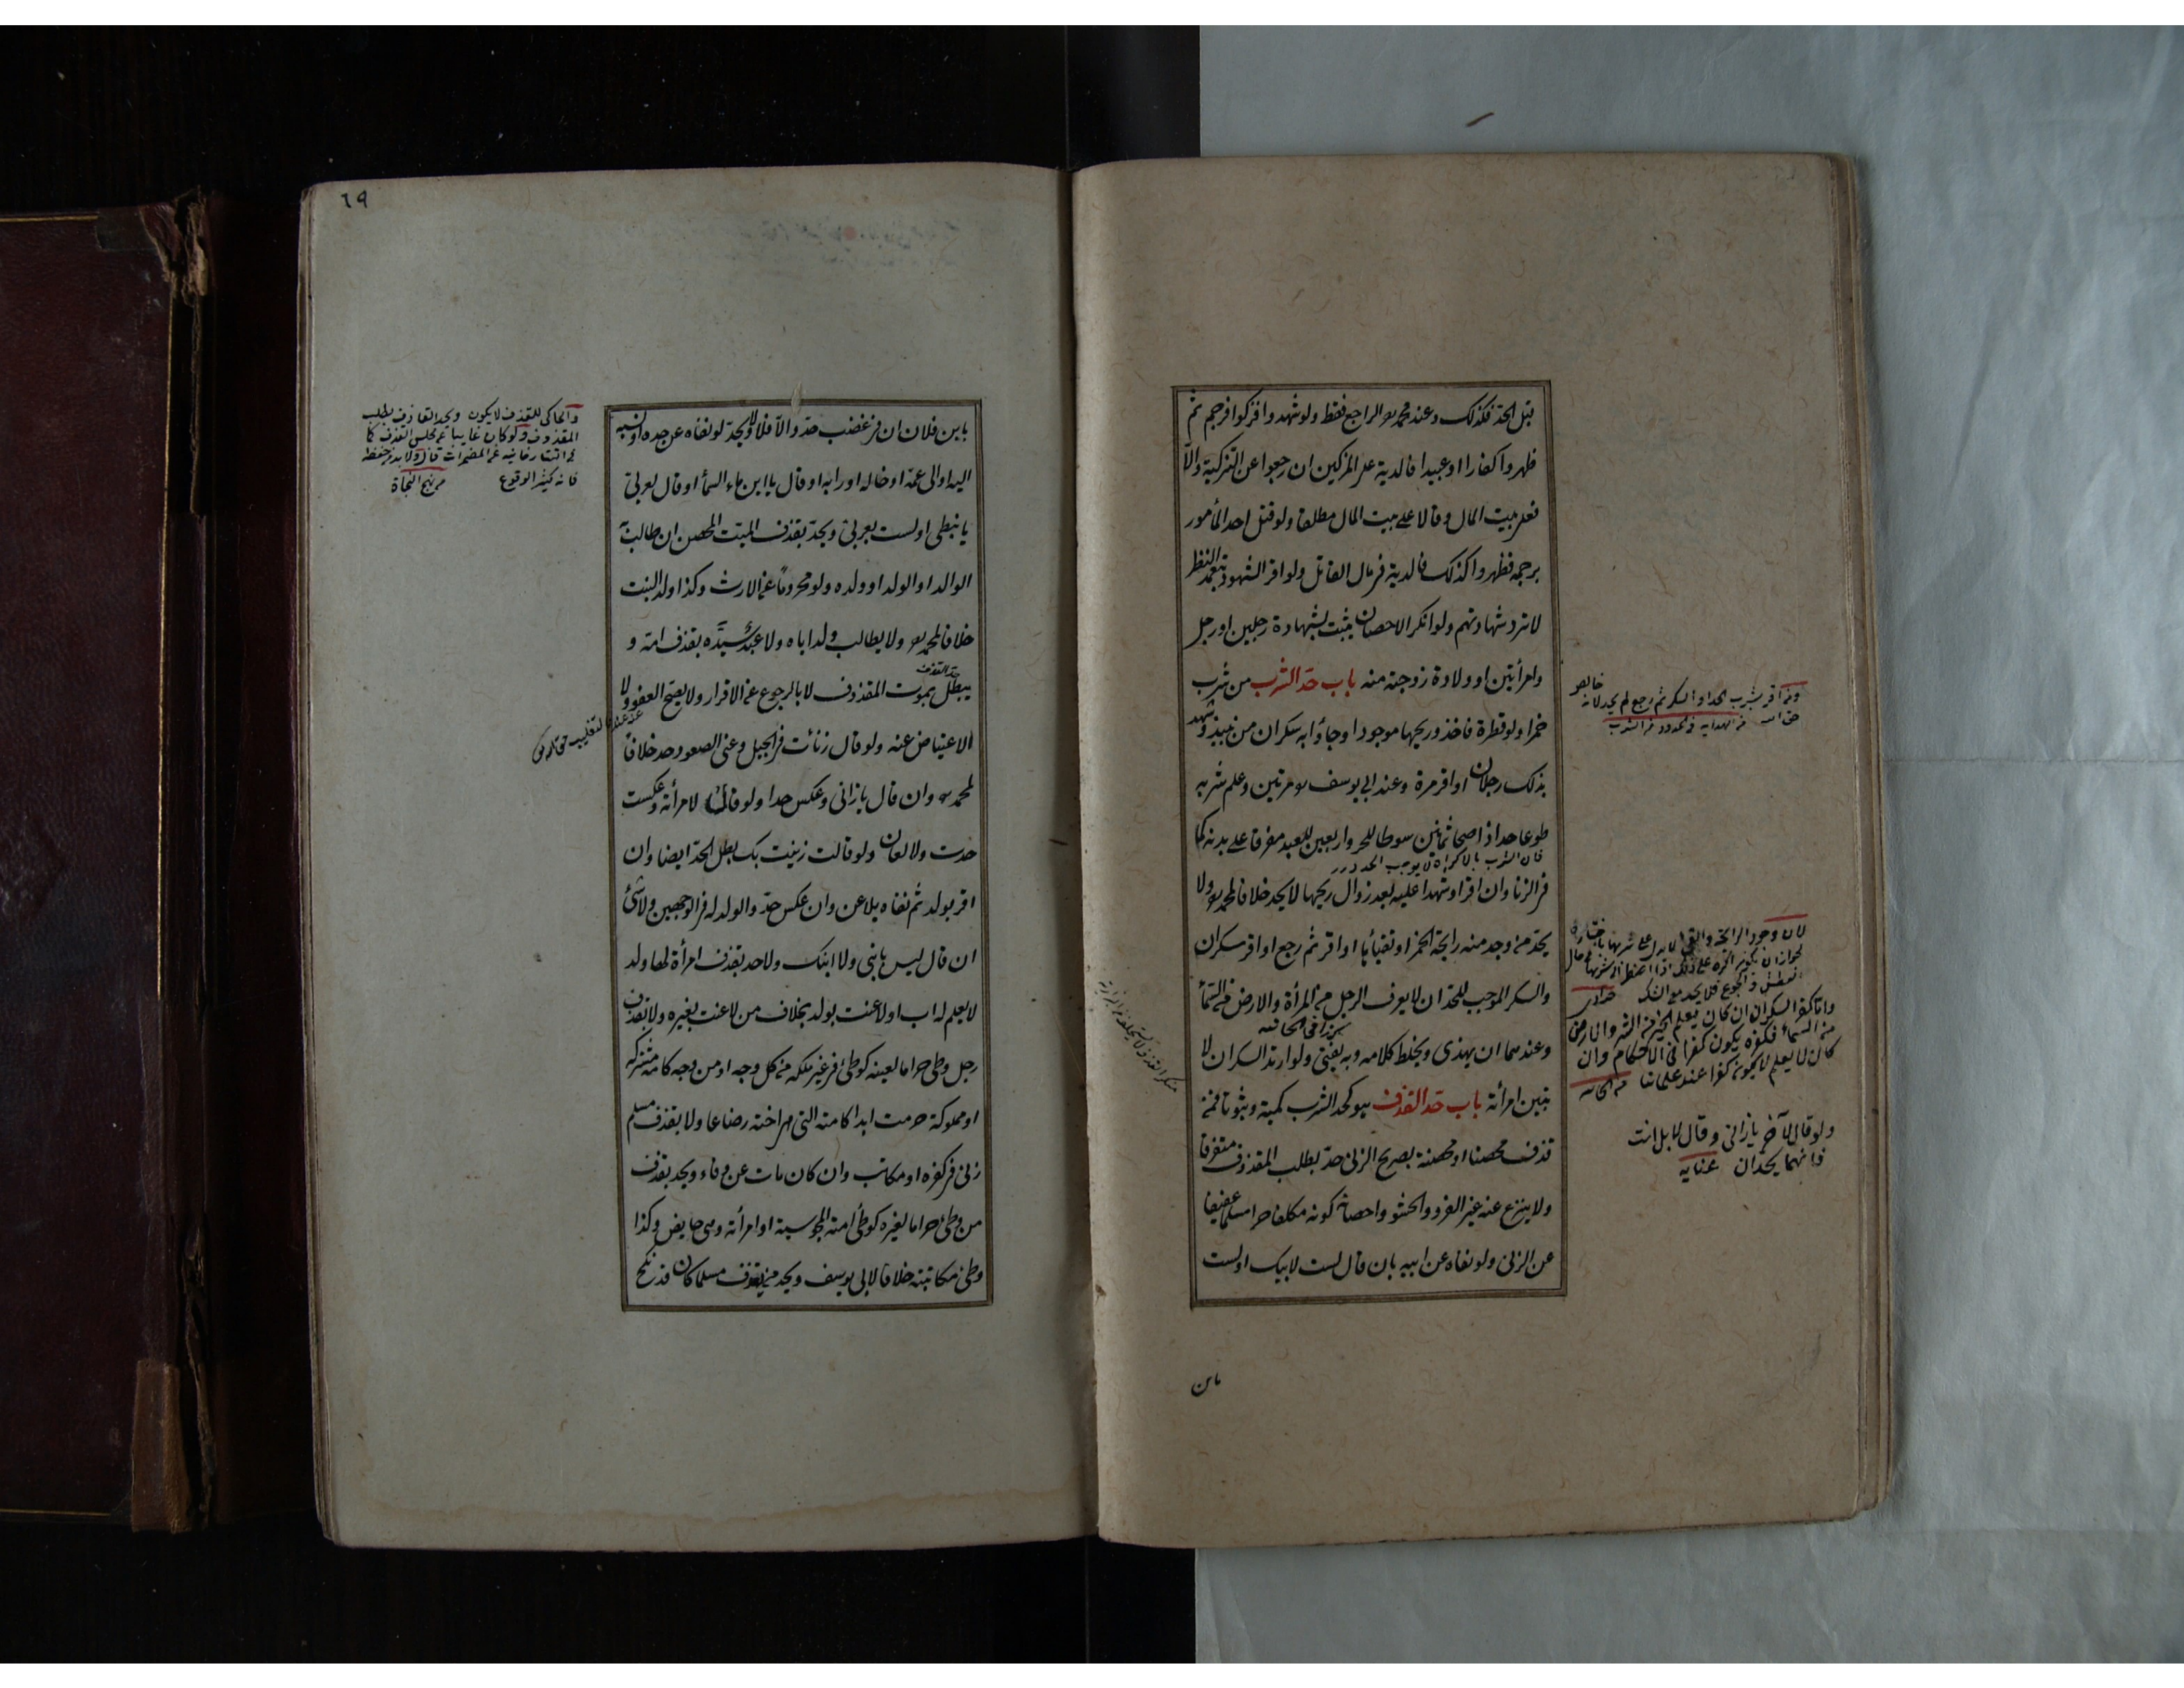 قبل الحد فكذلك وعند محمد رح الراجع فقط ولو شهدوا فزكوا فرجم ثم
ظهروا كفارا او عبيدا فالدية على المزكين ان رجعوا عن التزكية والا
فعلى بيت المال وقالا على بيت المال مطلقا ولو قتل احد المأمور
برجمه فظهروا كذلك فالدية فى مال القاتل ولو اقر الشهود بتعمد النظر
لا ترد شهادتهم ولو انكر الاحصان يثبت بشهادة رجلين او رجل
وامرأتين او ولادة زوجته منه باب حد الشرب من شرب
خمرا ولو قطرة فاخذ وريحها موجود او جاؤا به سكران من نبيذ وشهد
بذلك رجلان او اقر مرة وعند ابى يوسف رح مرتين وعلم شربه
طوعا حد اذا صحا ثمانين سوطا للحر واربعين للعبد مفرقا على بدنه كما
فان الشرب بالاكراه لا يوجب الحد درر
فى الزنا وان اقر او شهدا عليه بعد زوال ريحها لا يحد خلافا لمحمد رح ولا
يحد من وجد منه رايحة الخمر او تقيأها او اقر ثم رجع او اقر سكران
والسكر الموجب للحد ان لا يعرف الرجل من المرأة والارض من السمأ
كذا فى الخانيه
وعندهما ان يهذى ويخلط كلامه وبه يفتى ولو ارتد السكران لا
تبين امرأته باب حد القذف هو كحد الشرب كمية وثبوتا فمن
قذف محصنا او محصنة بصريح الزنى حد بطلب المقذوف متفرقا
ولا ينزع عنه غير الفرو والحشو واحصانه كونه مكلفا حرا مسلما عفيفا
عن الزنى ولو نفاه عن ابيه بان قال لست لابيك او لست
ومن اقر بشرب الخمر او السكر ثم رجع لم يحد لانه خالص
حق الله من الهدايه فى الحدود فى الشرب
لان وجود الرايحة والقئ لا يدل على شربها باختياره
واما كفر السكران ان كان يعلم الخير من الشر والارض
من السماء فكفره يكون كفرا فى الاحكام وان
كان لا يعلم لا يكون كفرا عند علمائنا من الخانيه
ولو قال لآخر يا زانى وقال لا بل انت
فانهما يحدان عنايه
٦٩
بابن فلان ان فى غضب حد والا فلا ولا يحد لو نفاه عن جده او نسبه
اليه او الى عمه او خاله او رابه او قال يا ابن ماء السمأ او قال لعربى
يا نبطى او لست بعربى ويحد بقذف الميت المحصن ان طالب به
الوالد او الولد او ولده ولو محروما عن الارث وكذا ولد البنت
خلافا لمحمد رح ولا يطالب ولد اباه ولا عبد سيده بقذف امه و
حد القذف
يبطل بموت المقذوف لا بالرجوع عن الاقرار ولا يصح العفو ولا
الاعتياض عنه ولو قال زنأت فى الجبل وعنى الصعود حد خلافا
لمحمد رح وان قال يا زانى وعكس حدا ولو قال لامرأته وعكست
حدت ولا لعان ولو قالت زنيت بك بطل الحد ايضا وان
اقر بولد ثم نفاه يلاعن وان عكس حد والولد له فى الوجهين ولا شئ
ان قال ليس بابنى ولا ابنك ولا حد بقذف امرأة لها ولد
لا يعلم له اب او لاعنت بولد بخلاف من لاعنت بغيره ولا بقذف
رجل وطئ حراما لعينه كوطئ فى غير ملكه من كل وجه او من وجه كامة مشتركة
او مملوكة حرمت ابدا كامته التى هى اخته رضاعا ولا بقذف مسلم
زنى فى كفره او مكاتب وان كان مات عن وفاء ويحد بقذف
من وطئ حراما لغيره كوطئ امته المجوسية او امرأته وهى حايض وكذا
وطئ مكاتبته خلافا لابى يوسف ويحد من قذف مسلما كان قد نكح
والحاكى للقذف لا يكون ويحد القاذف بطلب
المقذوف ولو كان غايبا عن مجلس القذف كما
فى التتارخانيه عن المضمرات قال ولا بد من حفظه
فانه كثير الوقوع من نهج النجاة